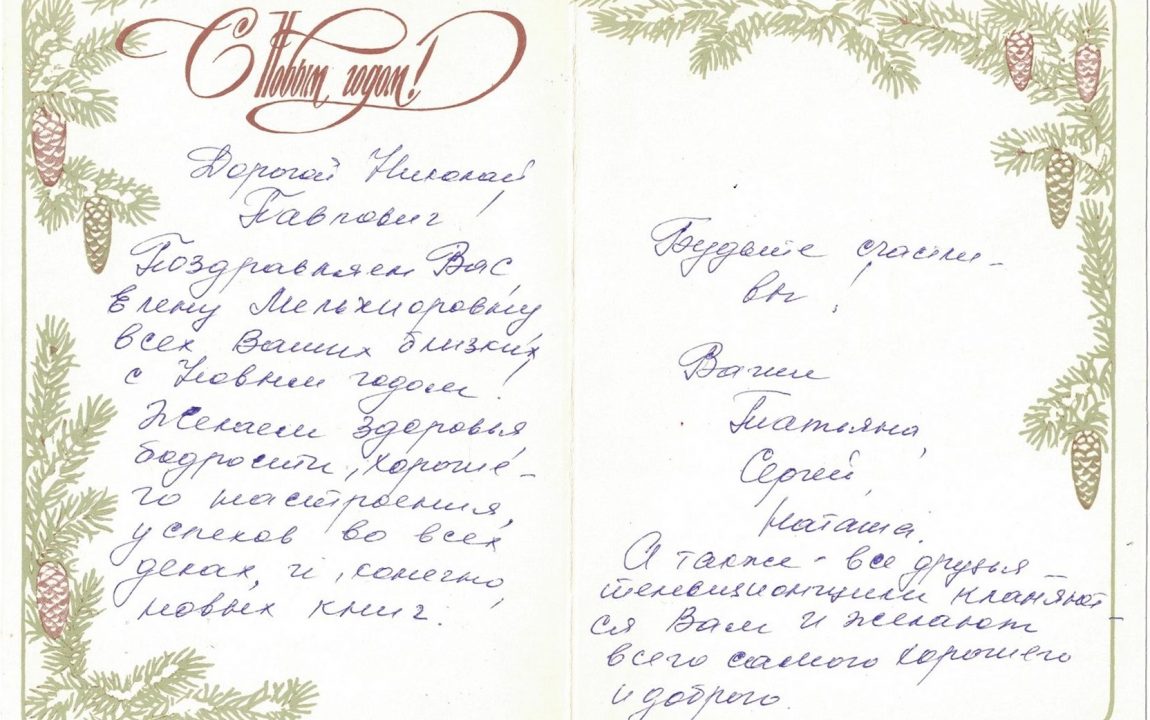 С Новым годом!
Дорогой Николай
Павлович!
Поздравляем Вас,
Елену Мельхиоровну,
всех Ваших близких
с Новым годом!
Желаем здоровья,
бодрости, хороше-
го настроения,
успехов во всех
делах, и, конечно,
новых книг.
Будьте счастли-
вы!
Ваши
Татьяна,
Сергей,
Наташа.
А также - все друзья -
телевизионщики кланяют-
ся Вам и желают
всего самого хорошего
и доброго.